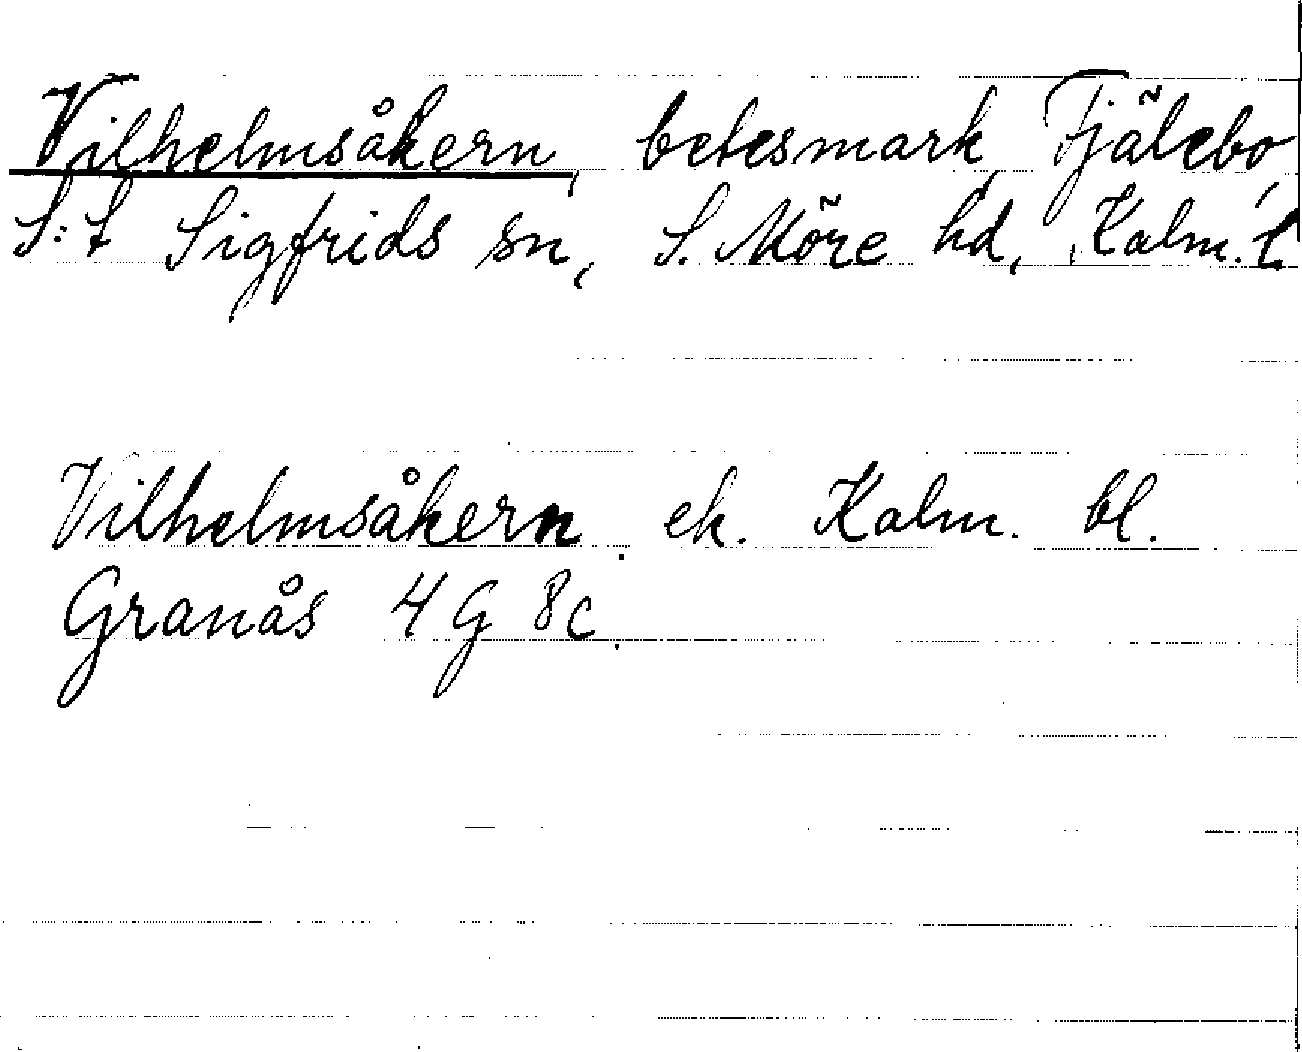 Vilhelmsåkern, betesmark, Fjälebo,
S:t Sigfrids sn, S. Möre hd, Kalm. l.
Vilhelmsåkern. ek. Kalm. bl.
Granås 4G 8c.